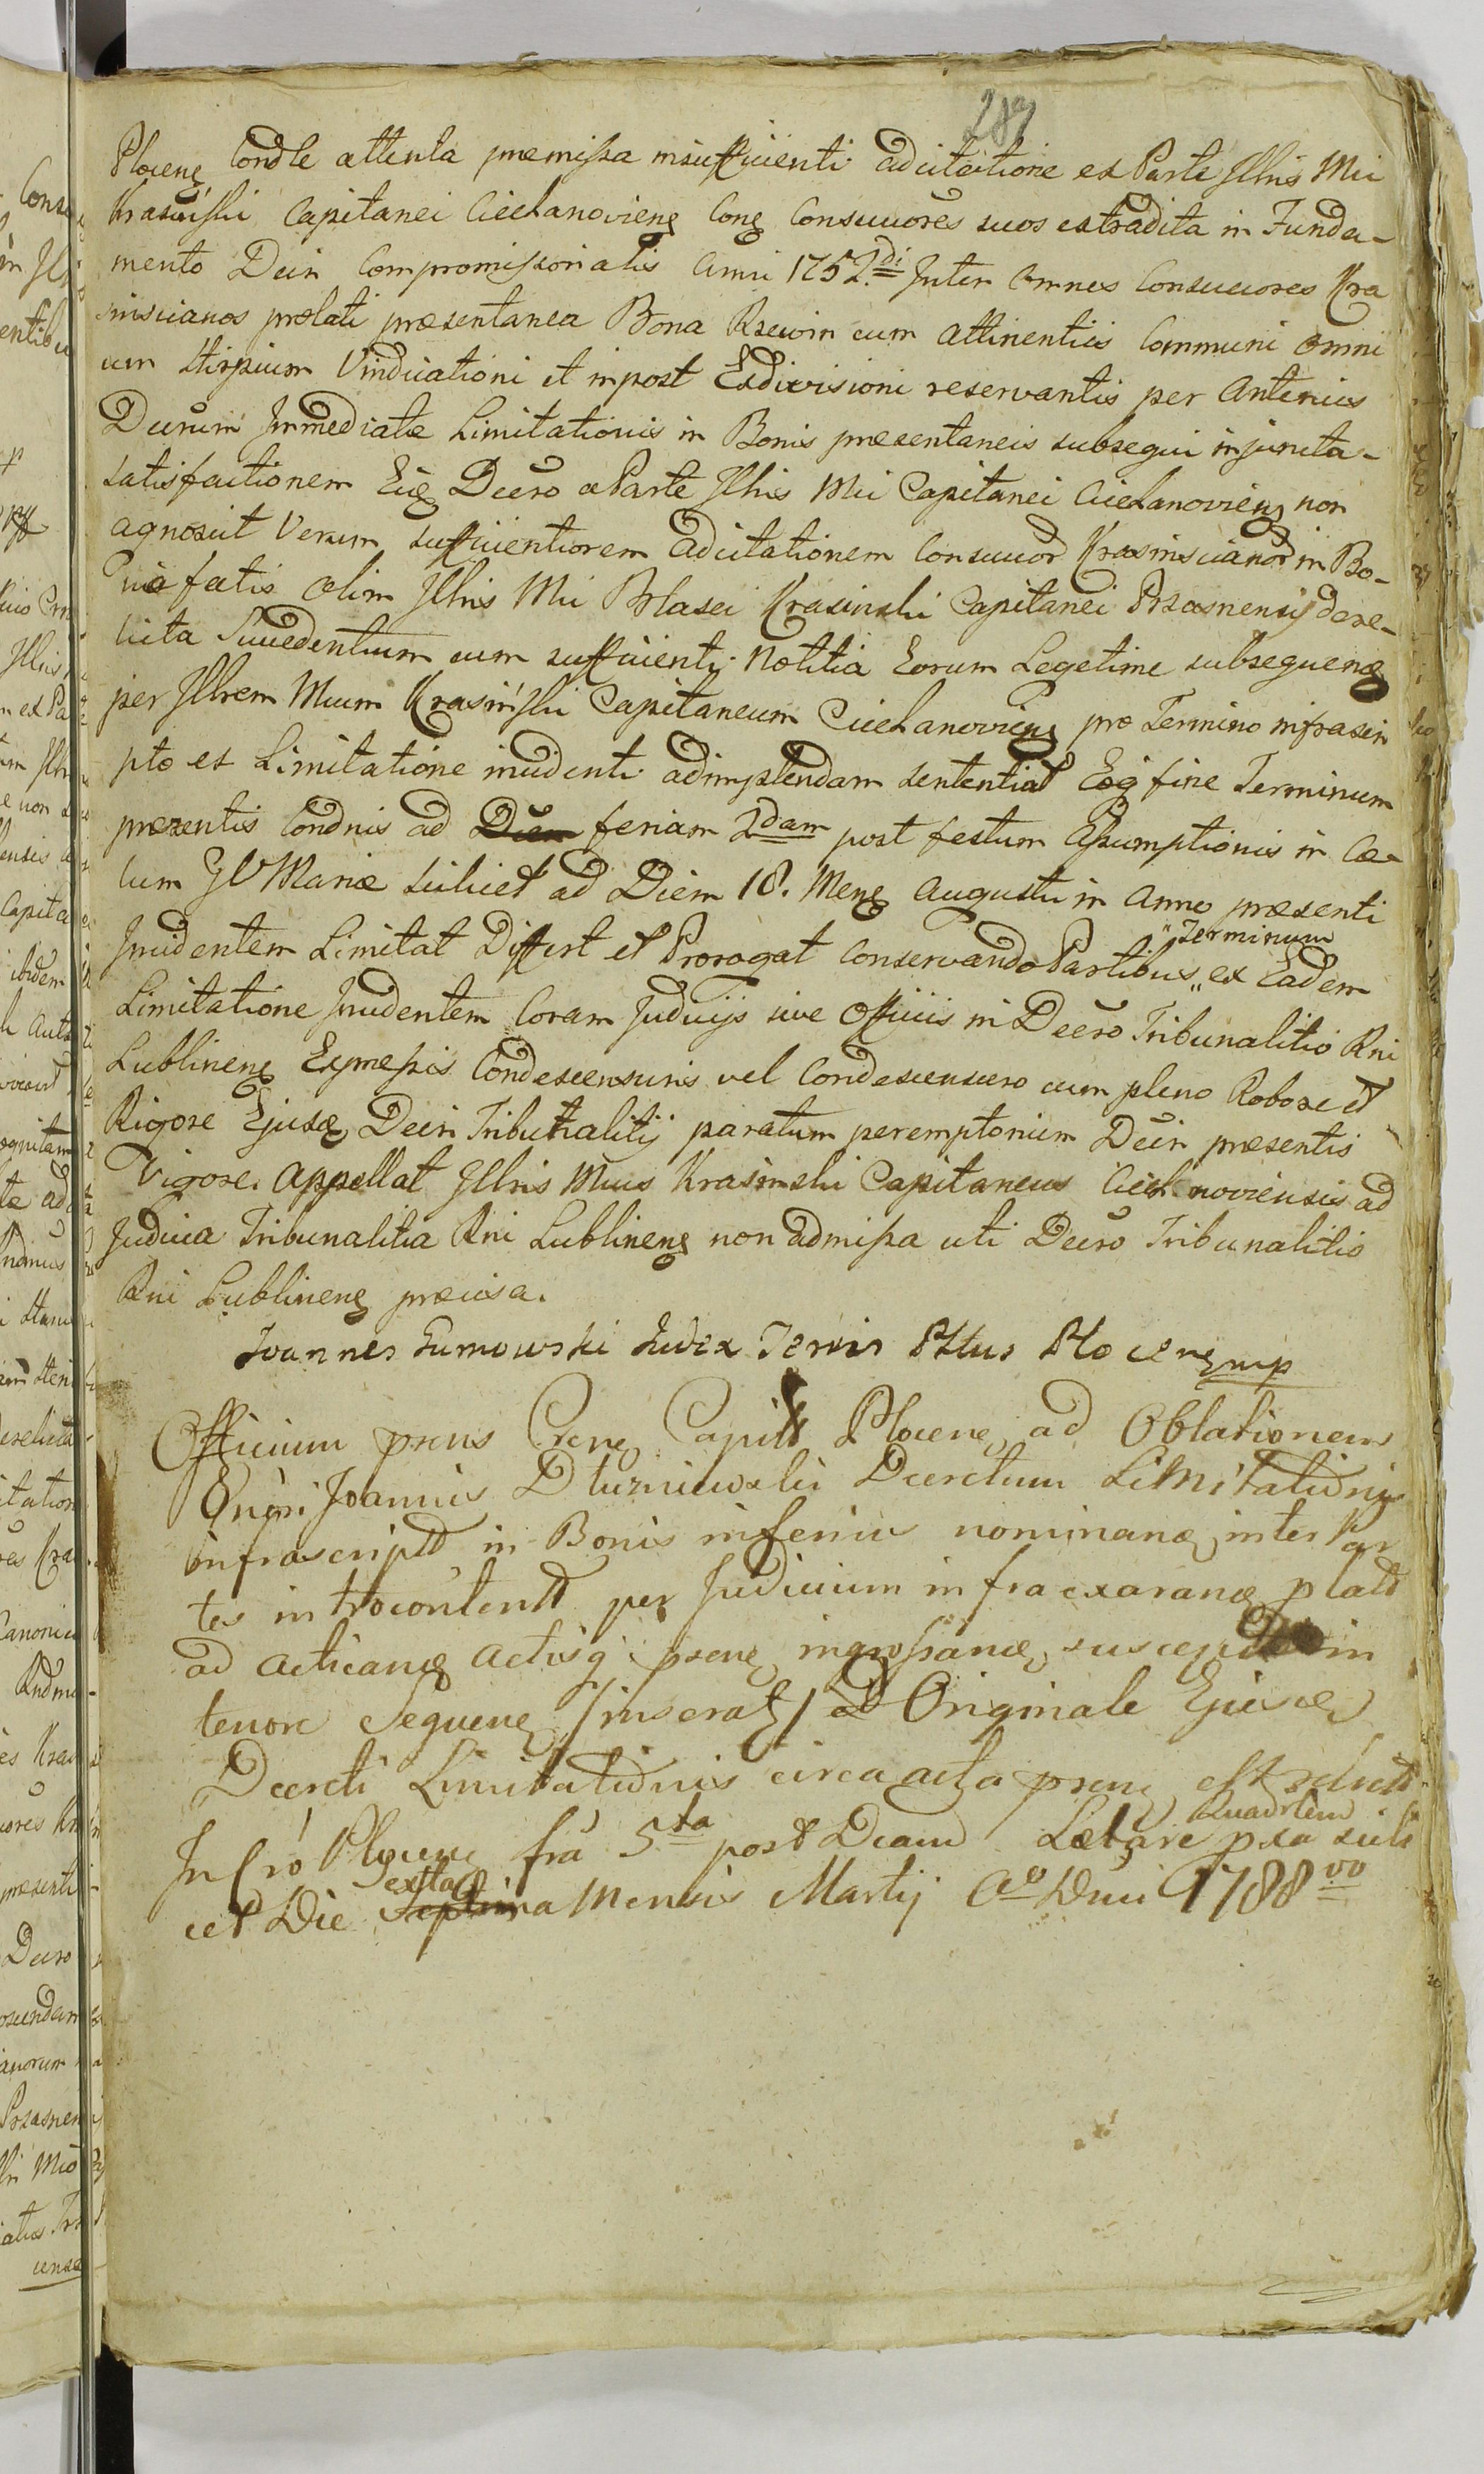 287
Plocenę Condle attenta præmissa insufficienti adcitatione ex Parte Jllris Mci
Krasiński Capitanei Ciechanovienę Conę Consuccores suos extradita in Funda-
mento Dein Compromissorialis Anni 1752di Inter Omnes Consuccores Kra
sinscianos prolati præsentanea Bona Rzewin cum attinentiis Communi omni
um stirpium Vindicationi et inpost Exdivisioni reservantis per Anterius
Decrum Immediatæ Limitationis in Bonis præsentaneis subsequi injuncta-
satisfactionem Eię Decro a Parte Jllris Mci Capitanei Ciechanovienę non
agnoscit Verum sufficientiorem adcitationem Consuccor Krasinscianor in Bo-
nis fatis olim Jllris Mci Blasei Krasinski Capitanei Przasnensis dere-
licta Succedentium cum sufficienti Notitia Eorum Legetime subsequenę
per Jllrem Mcum Krasiński Capitaneum Ciechanovienę pro Termino infrascri
pto ex Limitatione incidenti adimplendam sententiat Eoq fine Terminum
præsentis Condnis ad Diem feriam 2dam post festum Assumptionis in Cæ-
lum GV Mariæ scilicet ad Diem 18. Menę Augusti in Anno præsenti
Incidentem Limitat Differt et Prorogat Conservando Partibus „ ex Eadem
„Terminum
Limitatione Incidentem Coram Judicijs sive Officiis in Decro Tribunalitio Rni
Lublinenę Expressis Condescensuris vel Condescensuro cum pleno Robore et
Rigore Ejusdę Decri Tribunalitij paratum peremptorium Decri præsentis
Vigore. Appellat Jllris Mcus Krasinski Capitaneus Ciechanoviensis ad
Judicia Tribunalitia Rni Lublinenę non admissa uti Decro Tribunalitio
Rni Lublinenę præcisa.
Joannes Gumowski Judex Terris Pltus Plocenę mp
Officium præns Crenę Capitt Plocenę ad Oblationem
Gnri Joannis Dłuzniewski Decretum Limitationis
infrascriptt in Bonis inferius nominanę inter Par
tes introcontentt per Judicium infra exaranę platt
ad acticanę actisq prænę ingrossanę suscepit in
tenore Sequenę /: inserat :/ et Originale Ejusdę
Decreti Limitationis circa acta prænę est relictt
In Cro Plocenę fra 5ta post Dcam Lætare pxa scili
Quadrlem
cet Die Septima Mensis Martij Ao Dni 1788vo
exta